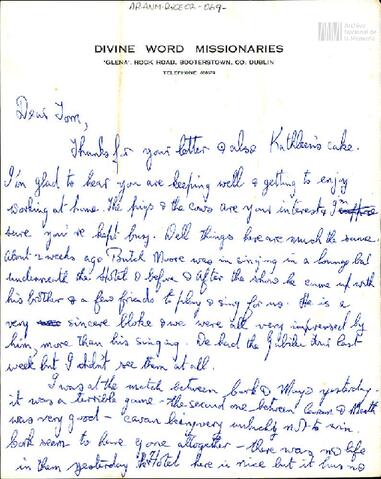 AR-ANM-DyCE02-069-
Archivo
Nacional de
la Memoria
DIVINE WORD MISSIONARIES
'GLENA', ROCK ROAD, BOOTERSTOWN, CO. DUBLIN
TELEPHONE
Dear Tom,
Thanks for your letter & also Kathleen's cake.
I'm glad to hear you are keeping well & getting to enjoy
working at home. The pigs & the cows are your interests, I'm
sure you're kept busy. Well things here are much the same.
About 2 weeks ago Butch Moore was in singing in a lounge bar
underneath the Hotel & before & after the show he came up with
his brother & a few friends to play & sing for us. He is a
very sincere bloke & we were all very impressed by
him, more than his singing. We had the last
week but I didn't see them at all.
I was at the match between Cork & Mayo yesterday -
it was a terrible game - the second one between Cavan & Meath
was very good - Cavan been very unlucky not to win.
Cork seem to have gone altogether - there was no life
in them yesterday. The Hotel here is nice but it has no